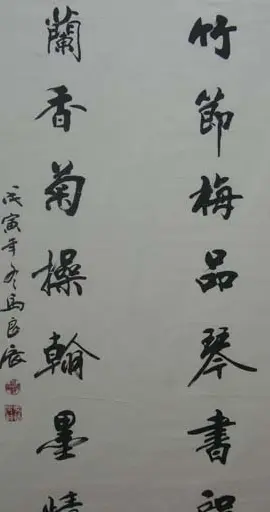 竹節梅品琴書
蘭香菊操翰墨情
戊寅年冬馬良辰